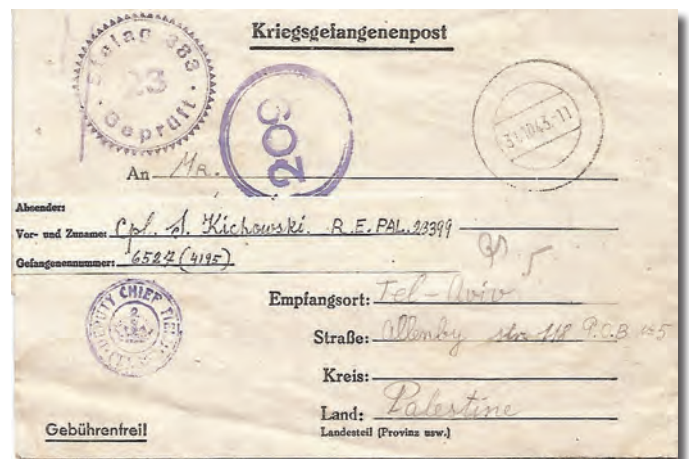 Kriegsgefangenenpost
Stalag 383
23
Geprüft
209
31.10.43.-11
An Mr.
Absender:
Vor- und Zuname: Cpl. S. Kichowski. R.E. PAL. 23399
Gefangenennummer: 6527 (4195)
DEPUTY CHIEF
5
Empfangsort: Tel-Aviv
Straße: Allenby str 118 P.O.B
Kreis:
Land: Palestine
Landesteil (Provinz usw.)
Gebührenfrei!